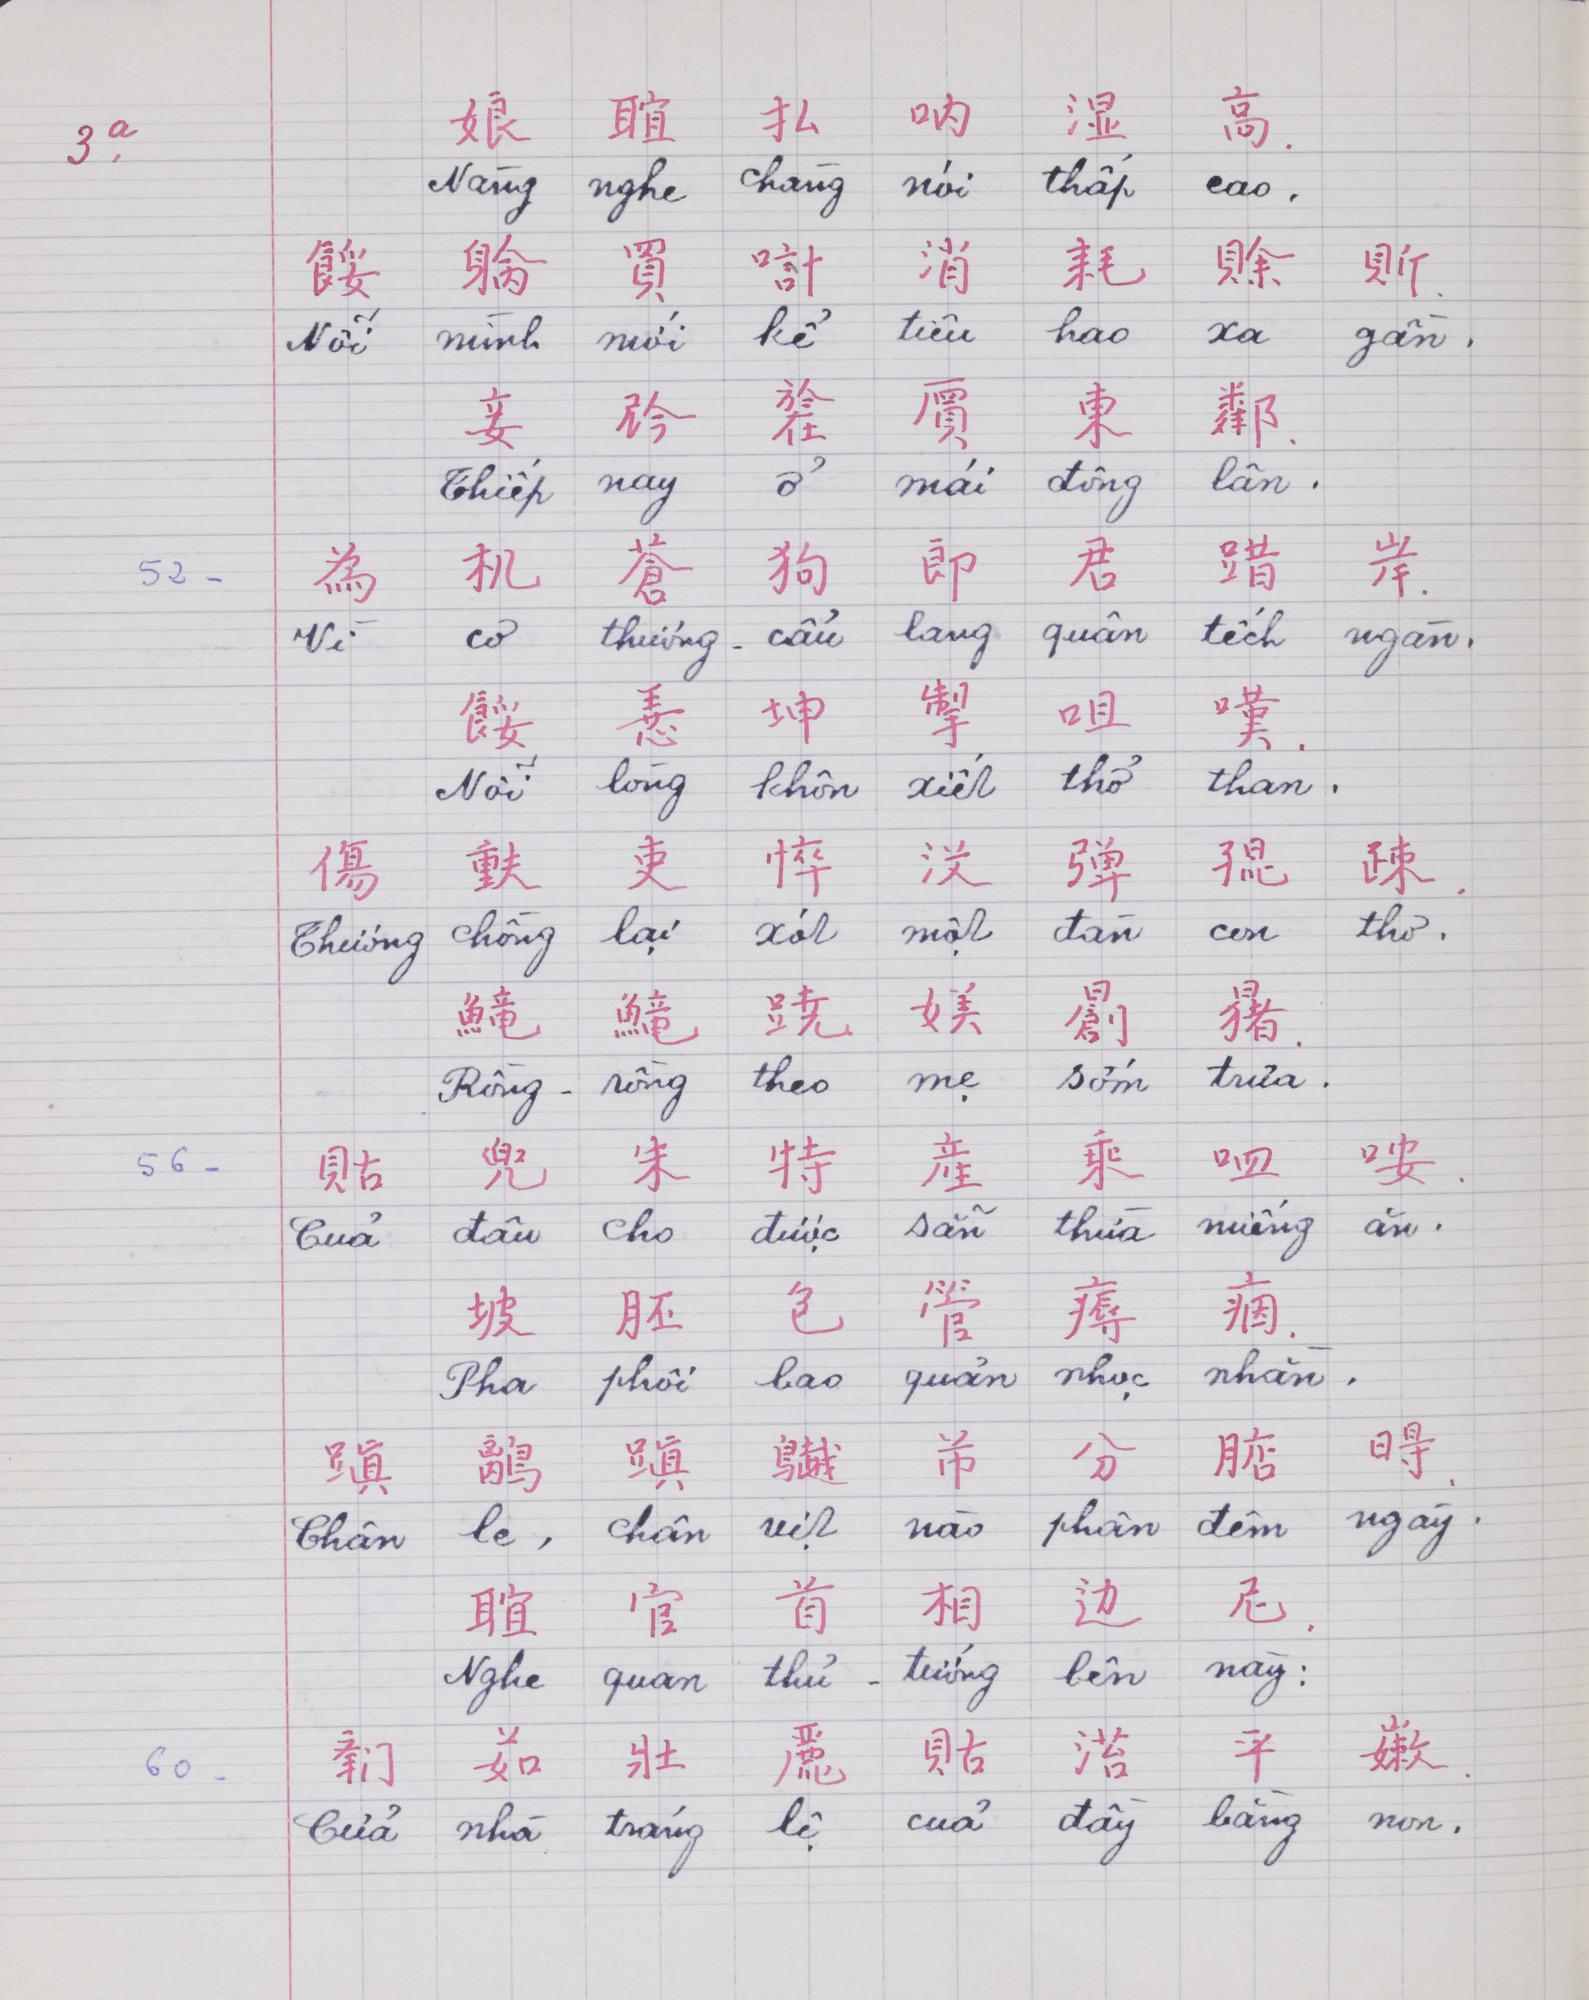 3ª.
娘 𦖑 払 吶 湿 高.
Nàng nghe chàng nói thấp cao.
餒 𨉓 買 計 消 耗 賒 𧵆.
Nỗi mình mới kể tiêu hao xa gần.
妾 𫢩 𣄒 𠪸 東 鄰.
Thiếp nay ở mái đông lân.
52 - 為 机 蒼 狗 郎 君 踖 岸.
Vì cơ thương - cẩu lang quân tếch ngàn.
餒 𢚸 坤 掣 咀 嘆.
Nỗi lòng khôn xiết thở than.
傷 𫯰 吏 悴 没 弹 𡥵 踈.
Thương chồng lại xót một đàn con thơ.
𩼤 𩼤 𨀊 媄 𣋽 𣋂.
Ròng - ròng theo mẹ sớm trưa.
56 - 貼 兜 朱 特 産 乘 𠰘 咹.
Của đâu cho được sẵn thừa miếng ăn.
坡 胚 包 管 𤸒 痼.
Pha phôi bao quản nhọc nhằn.
蹎 𪆧 蹎 𪂲 芇 分 𣎀 𣈜.
Chân le, chân vịt nào phân đêm ngày.
𦖑 官 首 相 边 尼.
Nghe quan thủ - tướng bên này:
60 - 𨷯 茹 壯 麗 貼 𣹓 平 𡽫.
Cửa nhà tráng lệ của đầy bằng non.